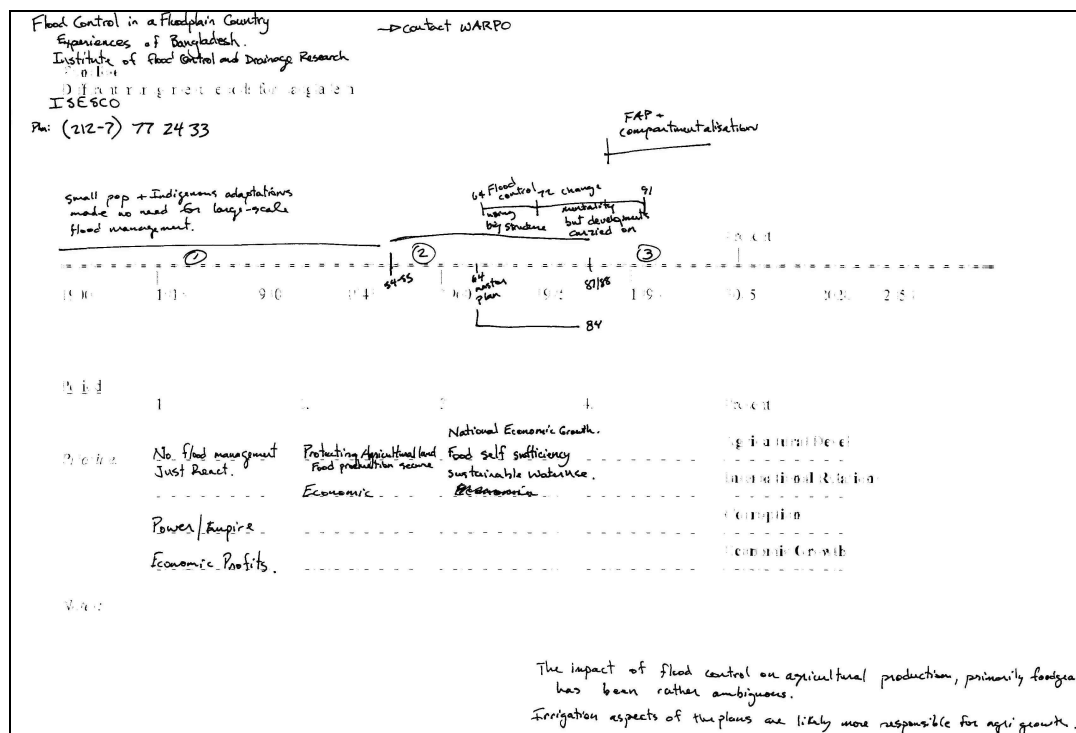 Flood Control in a Floodplain Country
Experiences of Bangladesh.
Institute of Flood Control and Drainage Research
→ contact WARPO
ISESCO
Ph: (212-7) 77 24 33
FAP +
compartmentalisation
small pop + Indigenous adaptations
made no need for large-scale
flood management.
64 Flood control 72 change 91
using big structure
mentality but developments carried on
1 2 3
54-55
64 master plan
87/88
84
1. 4.
No flood management
Just React.
Protecting Agricultural land
Food production secure
National Economic Growth.
Food self sufficiency
sustainable water use.
Economic
International Relation
Corruption
Power/Empire
Economic Growth
Economic Profits.
The impact of flood control on agricultural production, primarily
has been rather ambiguous.
Irrigation aspects of the plans are likely more responsible for agri growth.